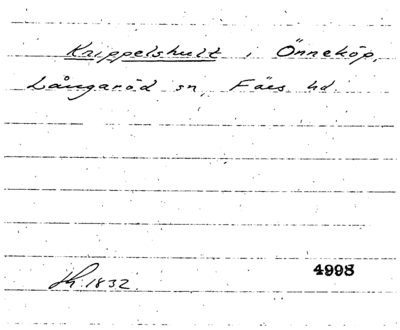 Krippelshult i Önneköp,
Långaröd sn, Färs hd.
4998
1832.